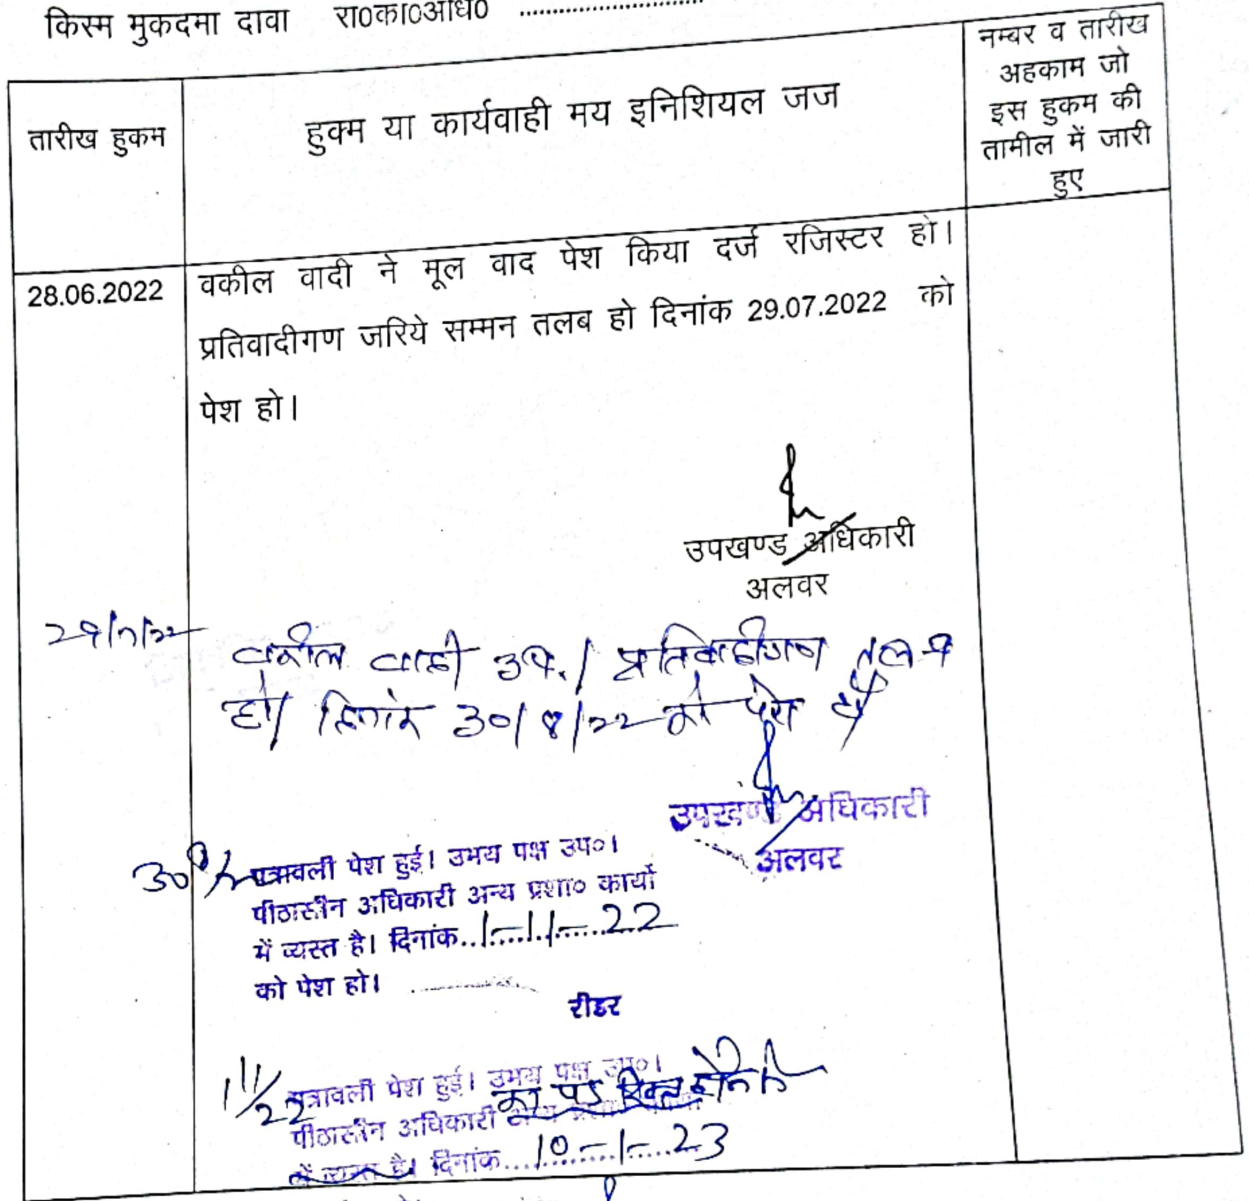 किस्म मुकदमा दावा रा०का०अधि० ........................
तारीख हुकम
हुक्म या कार्यवाही मय इनिशियल जज
नम्बर व तारीख
अहकाम जो
इस हुकम की
तामील में जारी
हुए
28.06.2022
वकील वादी ने मूल वाद पेश किया दर्ज रजिस्टर हो।
प्रतिवादीगण जरिये सम्मन तलब हो दिनांक 29.07.2022 को
पेश हो।
उपखण्ड अधिकारी
अलवर
29/7/22
वकील वादी उप./ प्रतिवादीगण तलब
हो/ दिनांक 30/8/22 को पेश हो
उपखण्ड अधिकारी
अलवर
पत्रावली पेश हुई। उभय पक्ष उप०।
पीठासीन अधिकारी अन्य प्रशा० कार्यो
में व्यस्त है। दिनांक..1-11-22
को पेश हो।
रीडर
1/11/22
पत्रावली पेश हुई। उभय पक्ष उप०।
पीठासीन अधिकारी का पद रिक्त होने से
में व्यस्त है। दिनांक....10-1-23